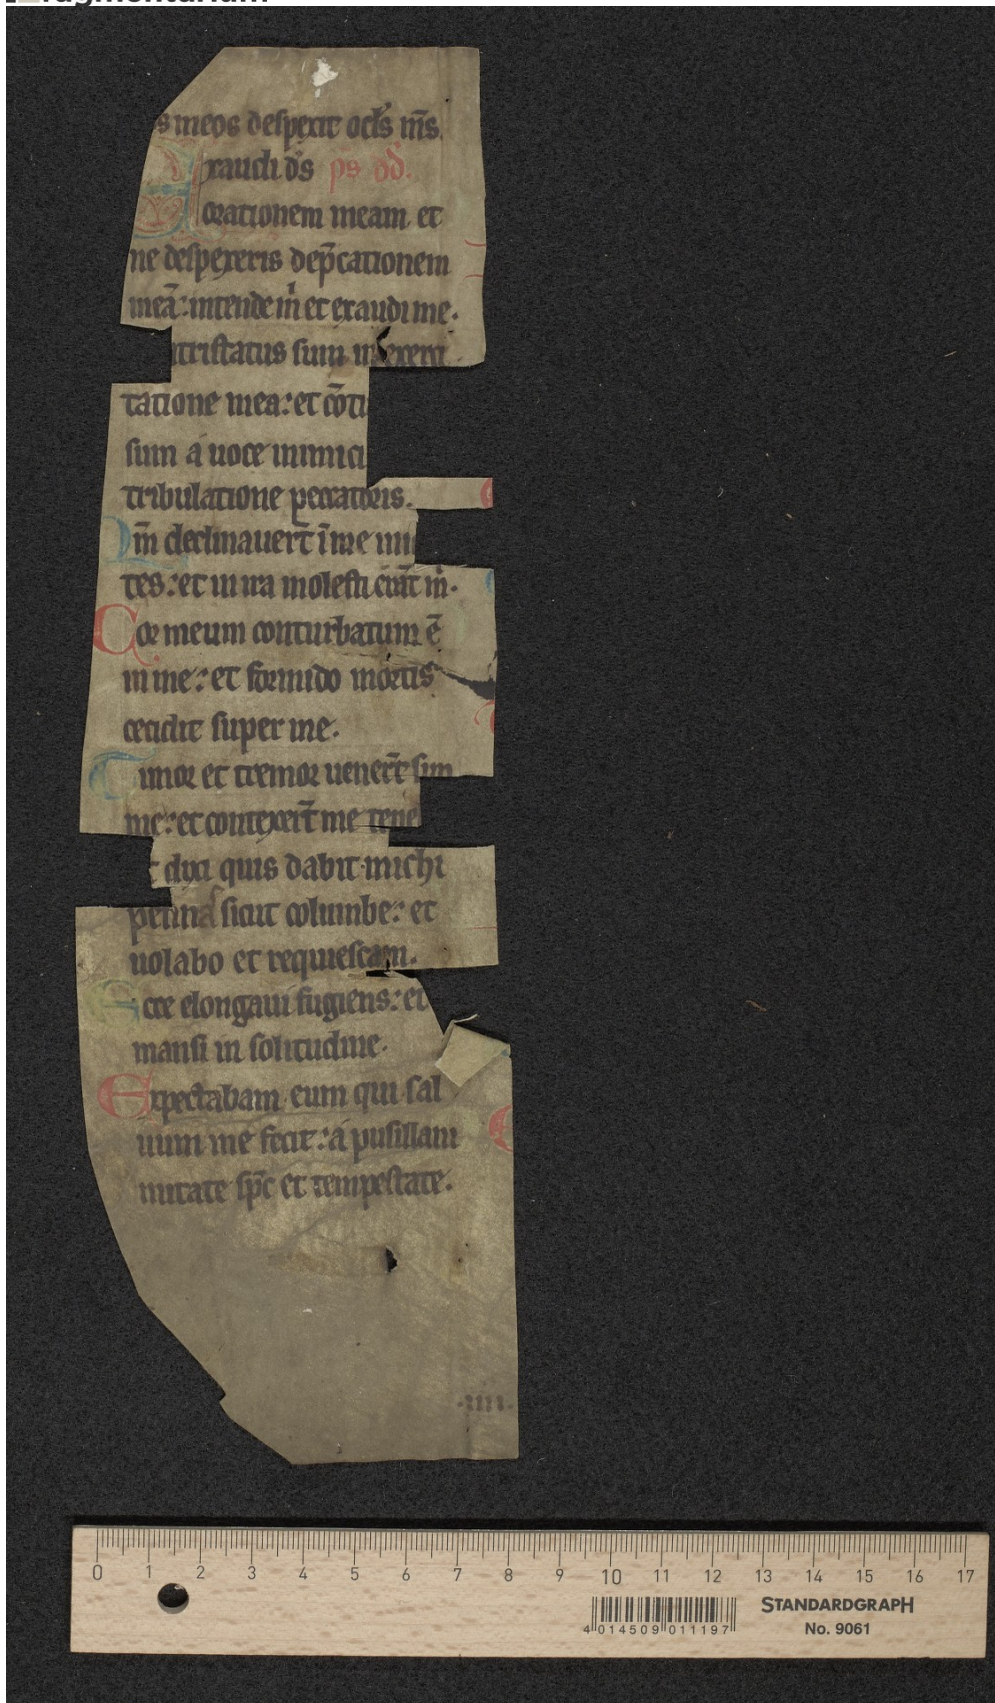 s meos despexit ocls ms.
Exaudi ds ps dd.
orationem meam et
ne despexeris dep̄cationem
meā: intende m̄ et exaudi me.
ntristatus sum in exerci
tatione mea: et cōtu
sum á uoce inimici
tribulatione peccatoris.
Qm̄ declinauert̄ ī me iniq
tes: et in ira molesti erāt m̄.
Cor meum conturbatum ē
in me: et formido mortis
cecidit super me.
Timor et tremor uenert̄ sup
me: et contexert̄ me tene
t dixi quis dabit michi
pennas sicut columbe: et
uolabo et requiescam.
Ecce elongaui fugiens: et
mansi in solitudine.
Expectabam eum qui sal
uum me fecit: á pusillani
mitate sp̄c et tempestate.
.iiii.
0 1 2 3 4 5 6 7 8 9 10 11 12 13 14 15 16 17
4 014509 011197
STANDARDGRAPH
No. 9061